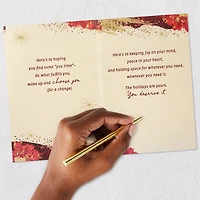 Here's to hoping
you find some "you time"–
do what fulfills you,
wake up and choose you
(for a change).
Here's to keeping joy on your mind,
peace in your heart,
and holding space for whatever you need,
whenever you need it.
The holidays are yours.
You deserve it.